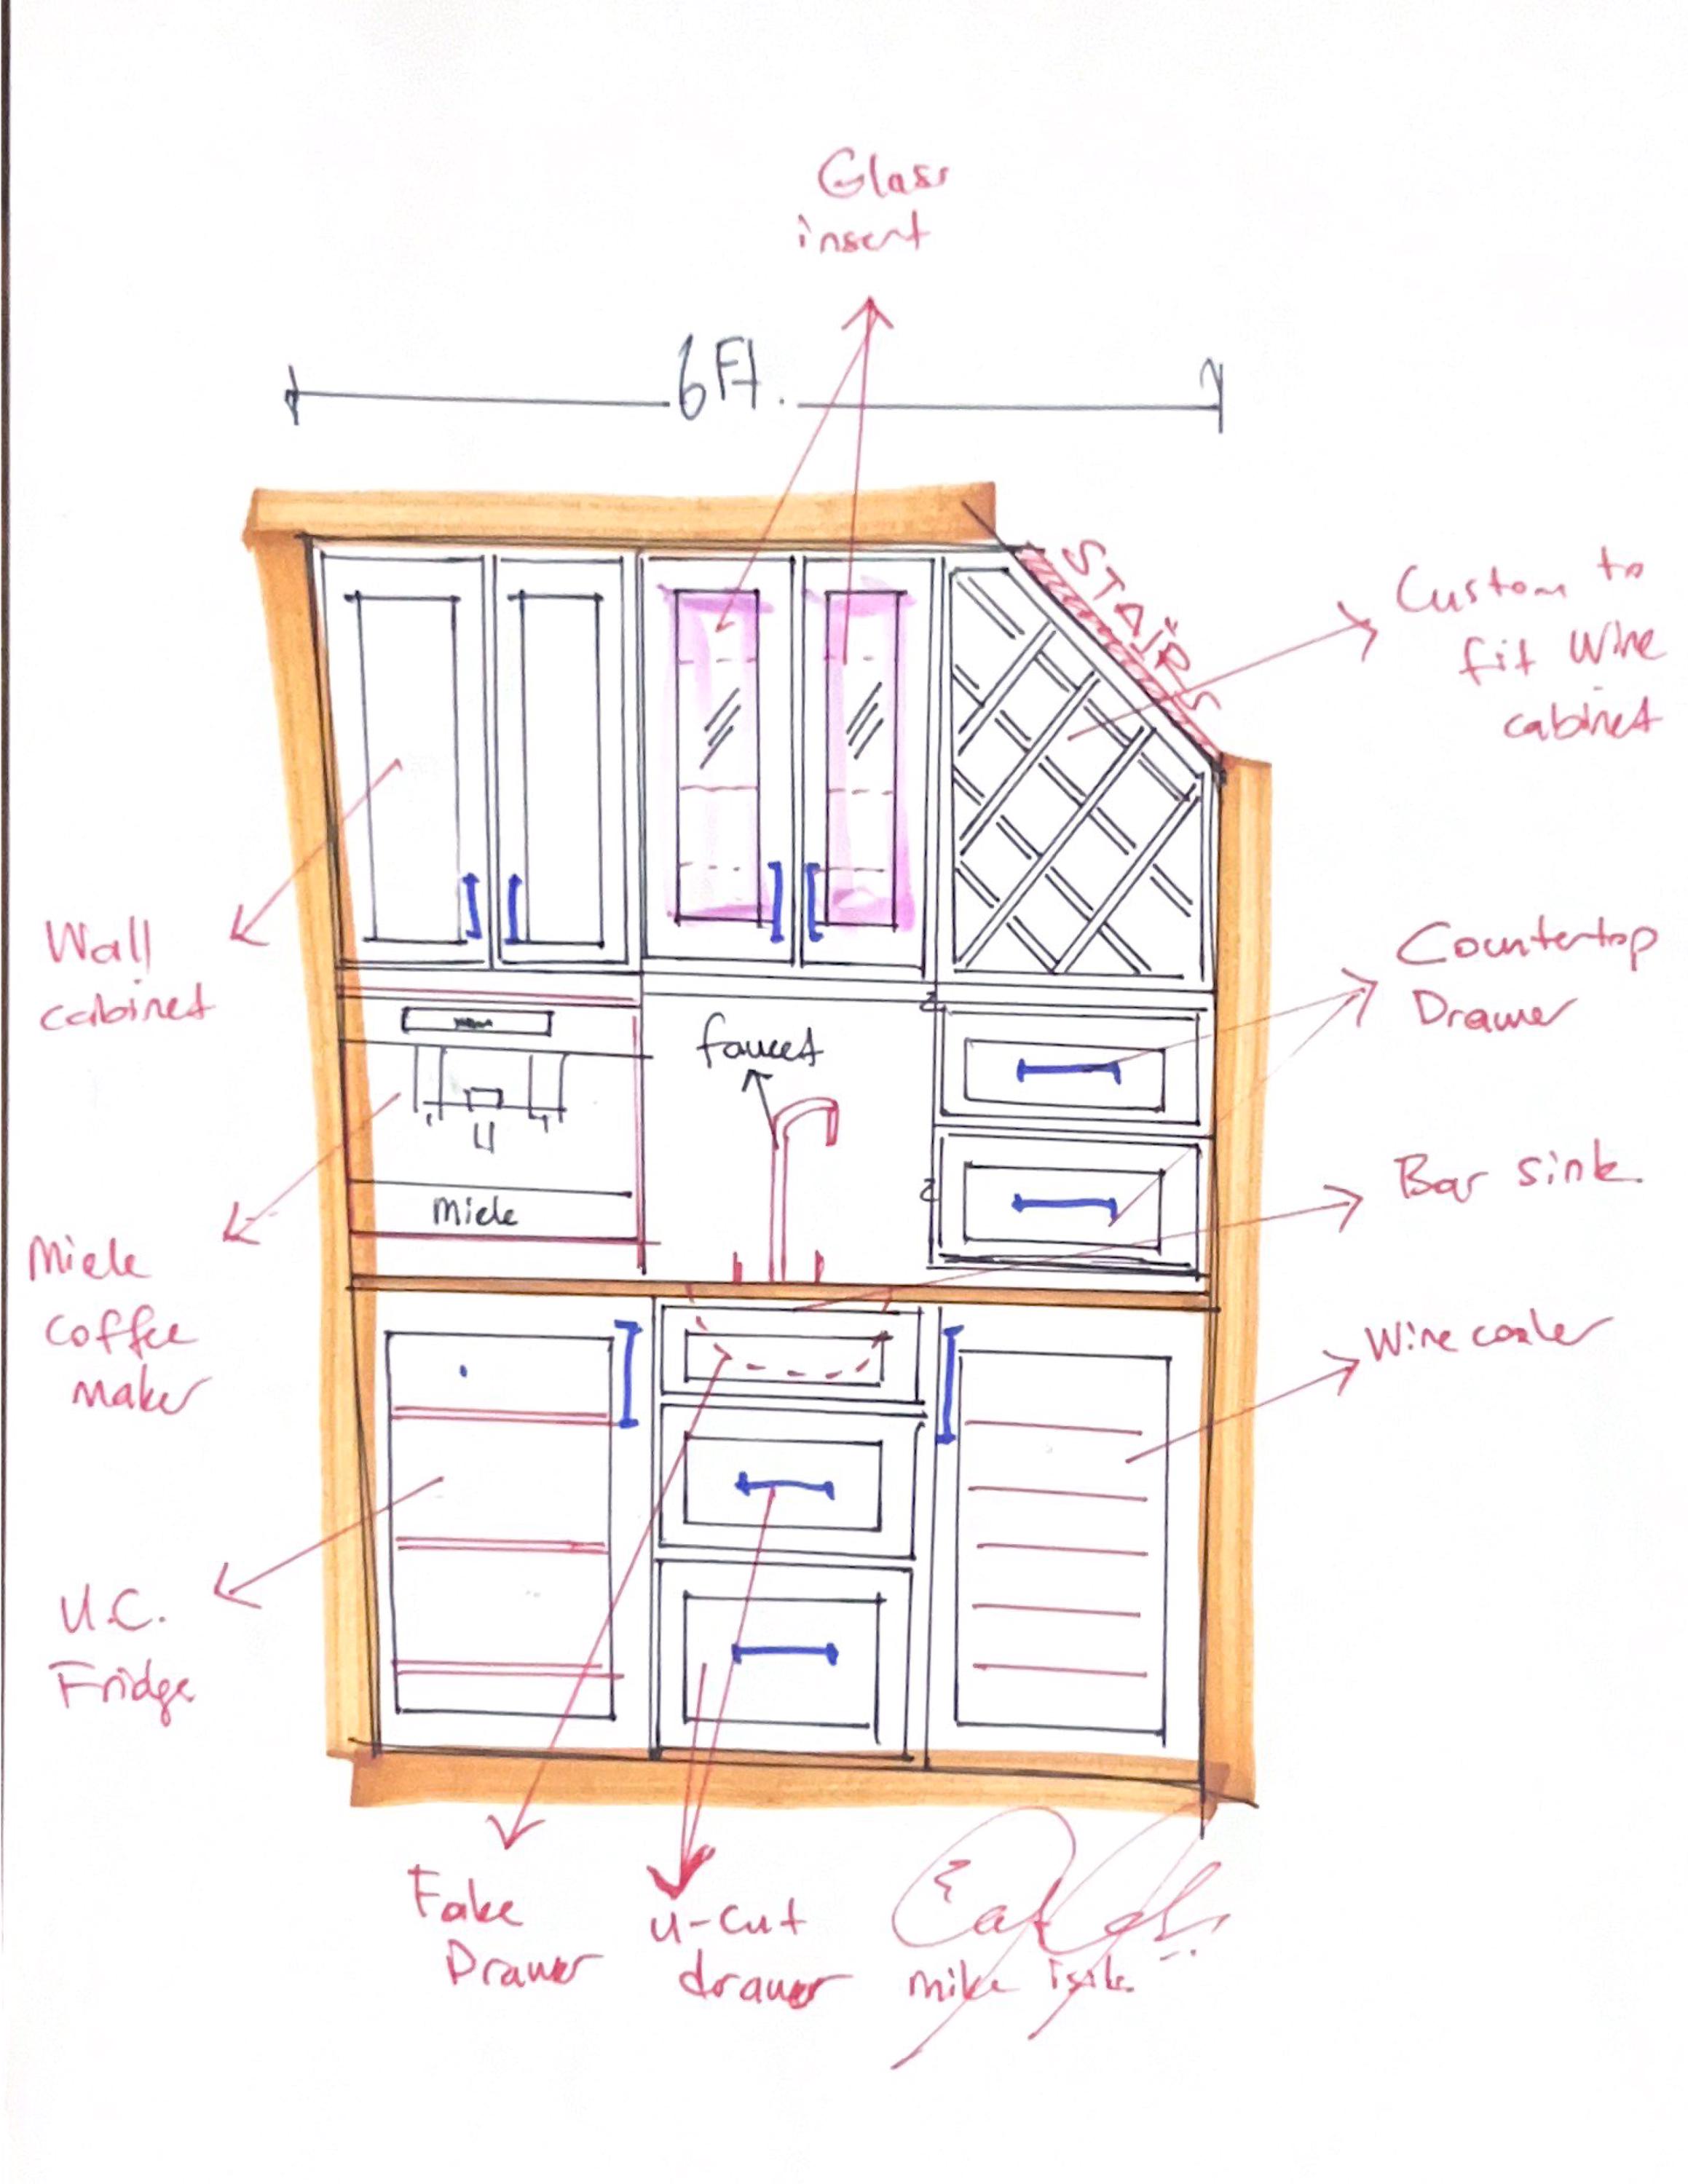 Glass
insert
6Ft.
STAIRS
Custom to
fit Wine
cabinet
Wall
cabinet
Countertop
Drawer
faucet
Miele
Bar sink
Miele
coffee
maker
Wine cooler
U.C.
Fridge
Fake
Drawer
u-cut
drawer
mike